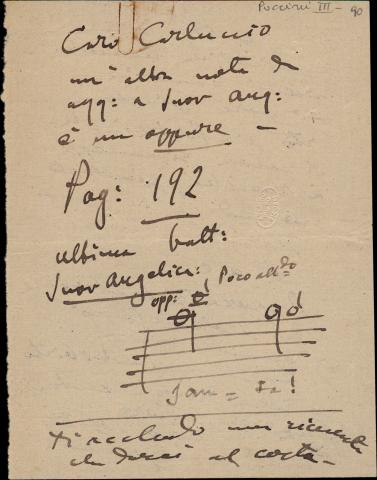 Puccini III - 90
Caro Carluccio
un'altra nota da
agg: a Suor Ang:
è un oppure —
Pag: 192
ultima batt:
Suor Angelica:
opp: Poco all.do
San = ti!
ti accludo una ricevuta
che darai al Costa -